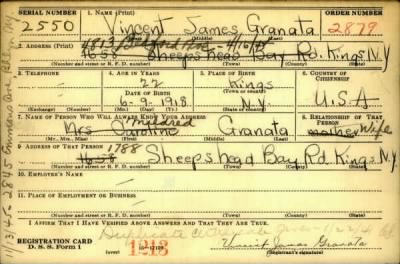 SERIAL NUMBER 1. NAME (Print) ORDER NUMBER
2550 Vincent James Granata 2879
(First) (Middle) (Last)
2. ADDRESS (Print)
1658 Sheepshead Bay Rd. Kings N.Y
(Number and street or R. F. D. number) (Town) (County) (State)
3. TELEPHONE 4. AGE IN YEARS 5. PLACE OF BIRTH 6. COUNTRY OF CITIZENSHIP
22 Kings
DATE OF BIRTH
6-9-1918 N.Y. U.S.A
(Mo.) (Day) (Yr.) (State or country)
7. NAME OF PERSON WHO WILL ALWAYS KNOW YOUR ADDRESS 8. RELATIONSHIP OF THAT PERSON
Mildred
Mrs Caroline Granata mother Wife
(Mr., Mrs., Miss) (First) (Middle) (Last)
9. ADDRESS OF THAT PERSON 1788
1658 Sheepshead Bay Rd. Kings N.Y
(Number and street or R. F. D. number) (Town) (County) (State)
10. EMPLOYER'S NAME
11. PLACE OF EMPLOYMENT OR BUSINESS
(Number and street or R. F. D. number) (Town) (County) (State)
I AFFIRM THAT I HAVE VERIFIED ABOVE ANSWERS AND THAT THEY ARE TRUE.
Duplicate
REGISTRATION CARD
D. S. S. Form 1 1213 Vincent James Granata